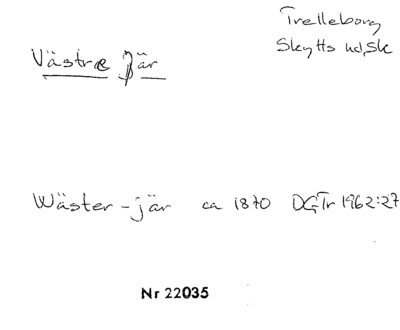 Trelleborg
Skytts hd, Sk
Västra Jär
Wäster-jär ca 1870 DGTr 1962:27
Nr 22035